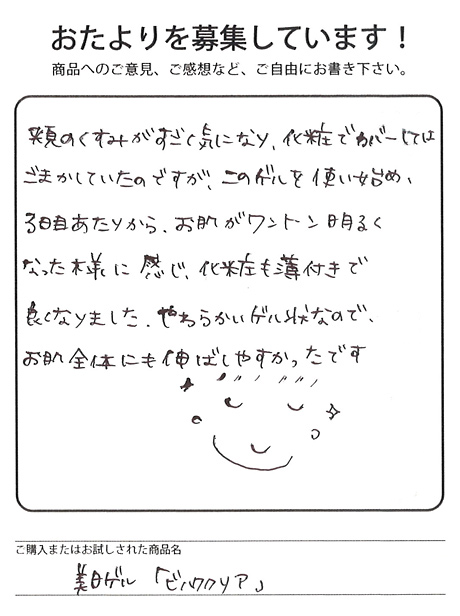 おたよりを募集しています！
商品へのご意見、ご感想など、ご自由にお書き下さい。
頬のくすみがすごく気になり、化粧でカバーしては
ごまかしていたのですが、このゲルを使い始め、
3日目あたりから、お肌がワントーン明るく
なった様に感じ、化粧も薄付きで
良くなりました。やわらかいゲル状なので、
お肌全体にも伸ばしやすかったです
ご購入またはお試しされた商品名
美白ゲル「ビハククリア」